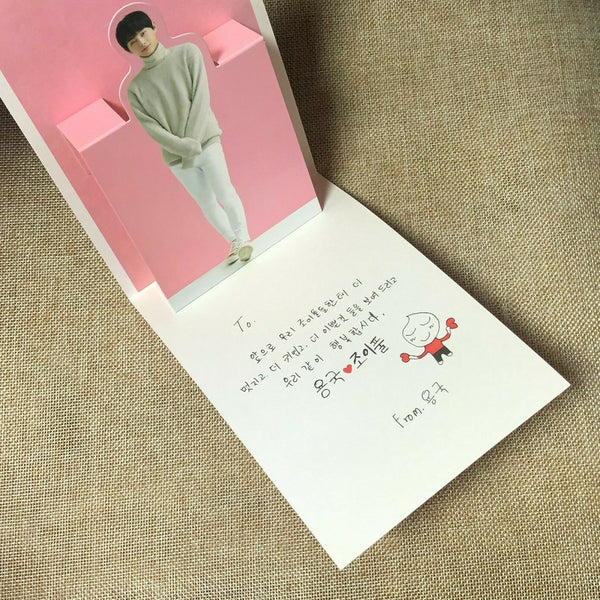 To.
앞으로 우리 조이풀들한테 더
멋지고, 더 귀엽고, 더 이쁜것 들을 보여 드리고
우리 같이 행복합시다.
용국♥조이풀
From. 용국